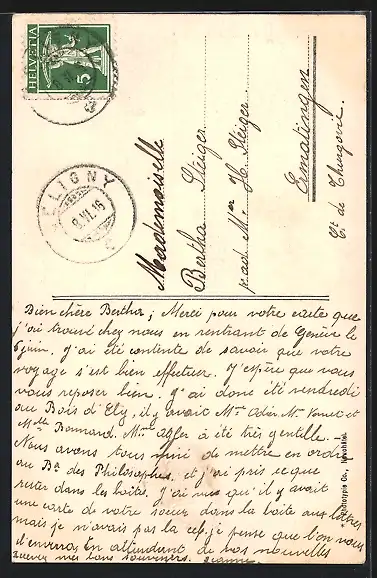 HELVETIA
5
LIGNY
8.VI.16
Mademoiselle
Bertha Steiger
p. ad. Mr H. Steiger
Ermatingen
Ct. de Thurgovie.
Bien chère Bertha; Merci pour votre carte que
j'ai trouvé chez nous en rentrant de Genève le
5 juin. J'ai été contente de savoir que votre
voyage s'est bien effectuer. J'espère que vous
vous reposer bien. J'ai donc été vendredi
au Bois d'Ely, il y avait Mme
Mlle Bonnard. Mme à été très gentille. —
Nous avons tous de mettre en ordre
au Bd des Philosophes et j'ai pris ce que
rester dans les boîtes. J'ai vu qu'il y avait
une carte de votre soeur dans la boite aux lettres
mais je n'avais pas la clef, je pense que l'on vous
l'enverra. En attendant de vos nouvelles
recevez mes bons souvenirs. Jeanne.
Phototypie Co., Neuchâtel